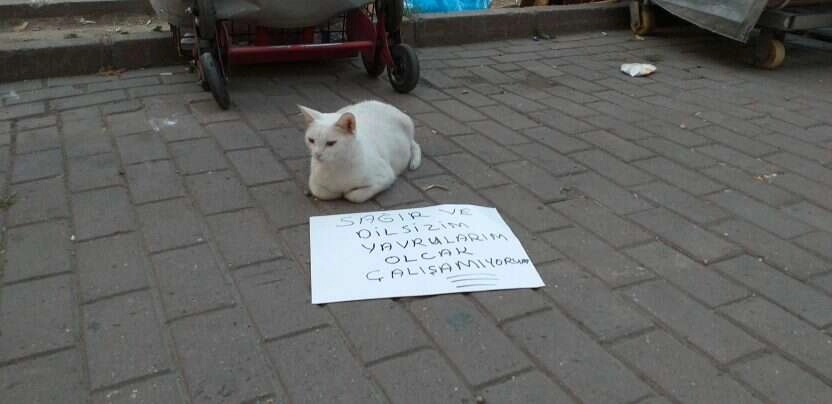 SAĞIR VE
DİLSİZİM
YAVRULARIM
OLCAK
ÇALIŞAMIYORUM